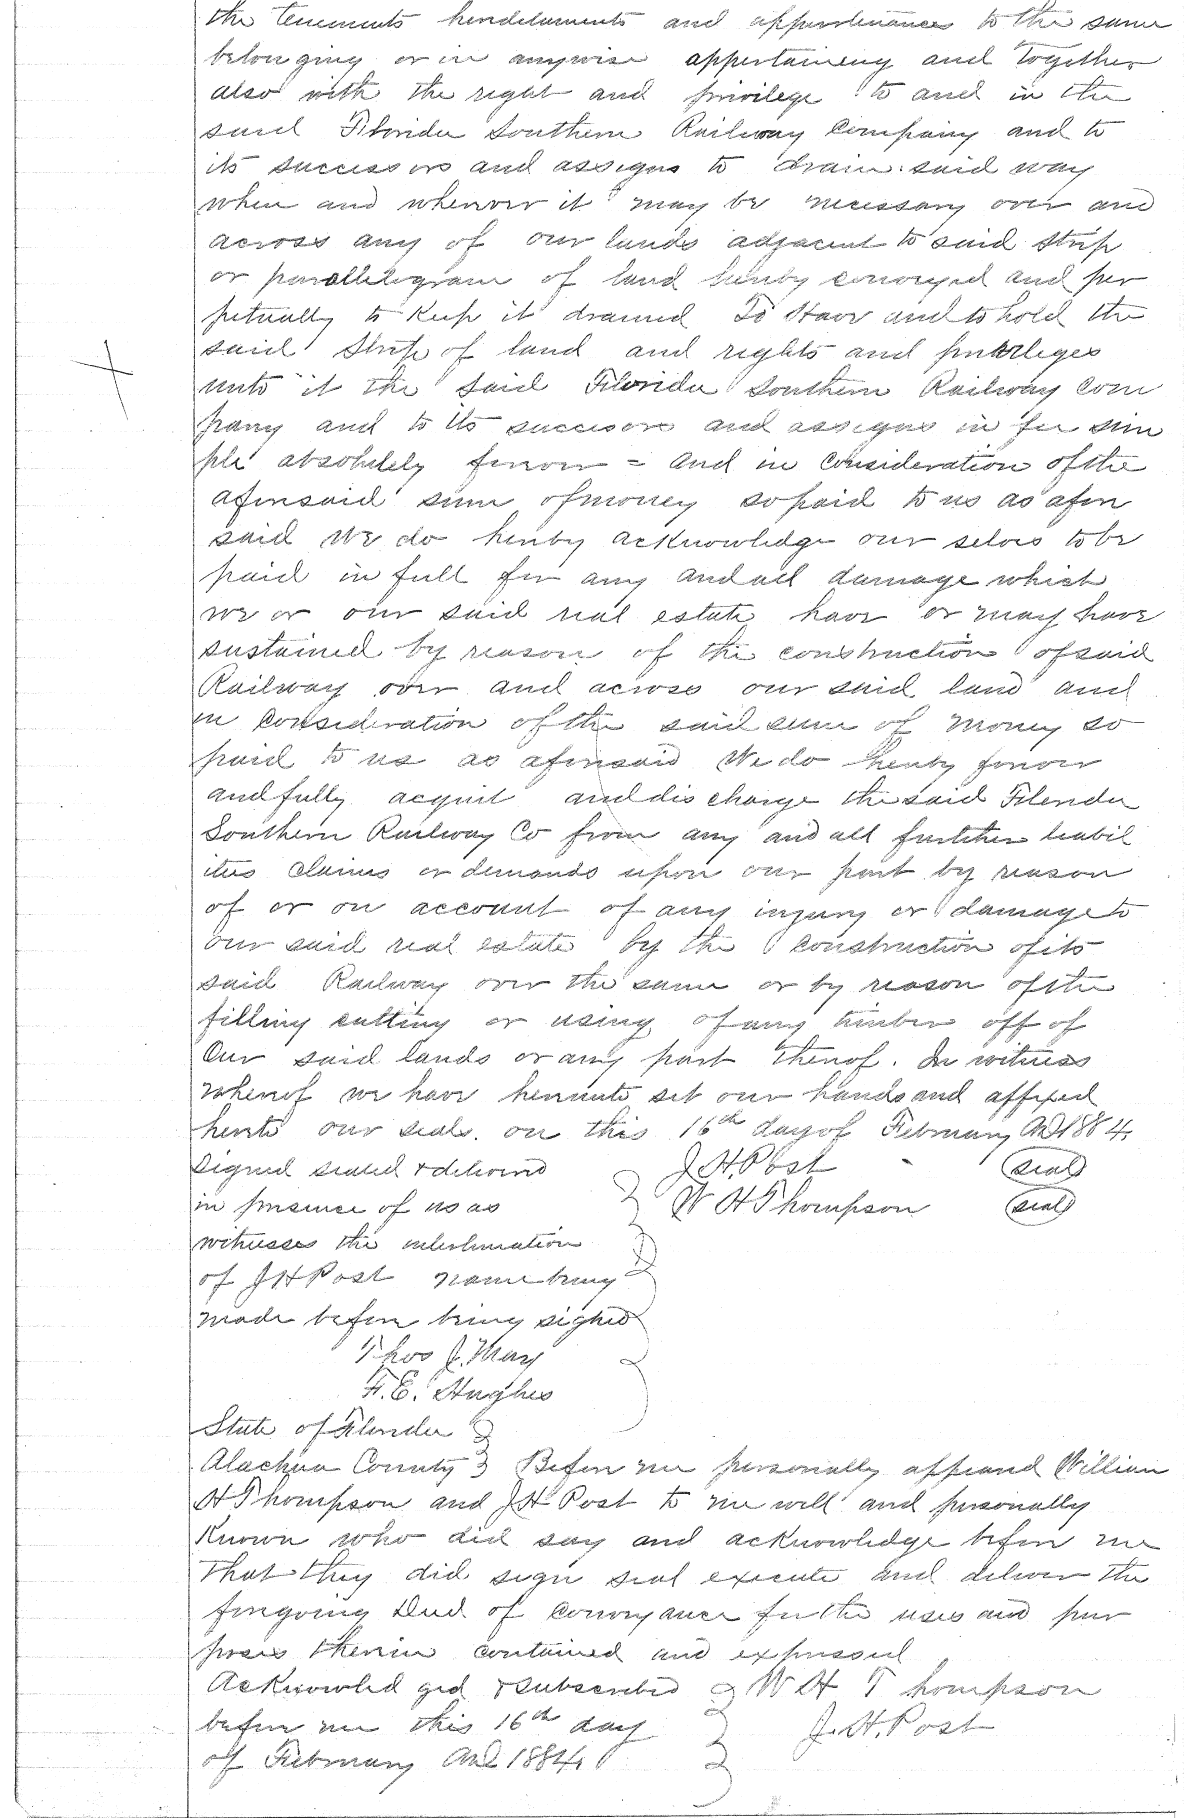 the tenements hereditaments and appurtenances to the same
belonging or in anywise appertaining and together
also with the right and privilege to and in the
said Florida Southern Railway Company and to
its successors and assigns to drain said way
when and wherever it may be necessary over and
across any of our lands adjacent to said strip
or parallelogram of land hereby conveyed and per
petually to keep it drained To Have and to hold the
said Strip of land and rights and privileges
unto it the said Florida Southern Railway Com
pany and to its successors and assigns in fee sim
ple absolutely forever = and in consideration of the
aforesaid sum of money so paid to us as afore
said We do hereby acknowledge our selves to be
paid in full for any and all damage which
we or our said real estate have or may have
sustained by reason of the construction of said
Railway over and across our said land and
in consideration of the said sum of money so
paid to us as aforesaid We do hereby forever
and fully acquit and discharge the said Florida
Southern Railway Co from any and all further liabil
ities claims or demands upon our part by reason
of or on account of any injury or damage to
our said real estate by the construction of its
said Railway over the same or by reason of the
filling cutting or using of any timber off of
Our said lands or any part thereof. In witness
whereof we have hereunto set our hands and affixed
hereto our seals. on this 16th day of February AD 1884.
Signed sealed & delivered J. H. Post (seal)
in presence of us as W H Thompson (seal)
witnesses the interlineation
of J H Post name being
made before being signed
Thos J. May
F. E. Hughes
State of Florida
Alachua County } Before me personally appeared William
H Thompson and J H Post to me well and personally
Known who did say and acknowledge before me
That they did sign seal execute and deliver the
foregoing Deed of conveyance for the uses and pur
poses therein contained and expressed
Acknowledged & subscribed W H Thompson
before me this 16th day J. H. Post
of February AD 1884.